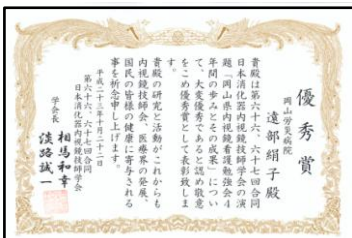 優秀賞
岡山労災病院
遠部絹子殿
貴殿は第六十六、六十七回合同
日本消化器内視鏡技師学会の演
題「岡山県内視鏡看護勉強会4
年間の歩みとその成果」につい
て、大変優秀であると認め敬意
をこめ優秀賞として表彰致しま
す。
貴殿の研究と活動がこれからも
内視鏡技師会、医療界の発展、
国民の皆様の健康に寄与される
事を祈念申し上げます。
平成二十三年十月二十二日
第六十六、六十七回合同
日本消化器内視鏡技師学会
学会長
相馬和幸
淡路誠一